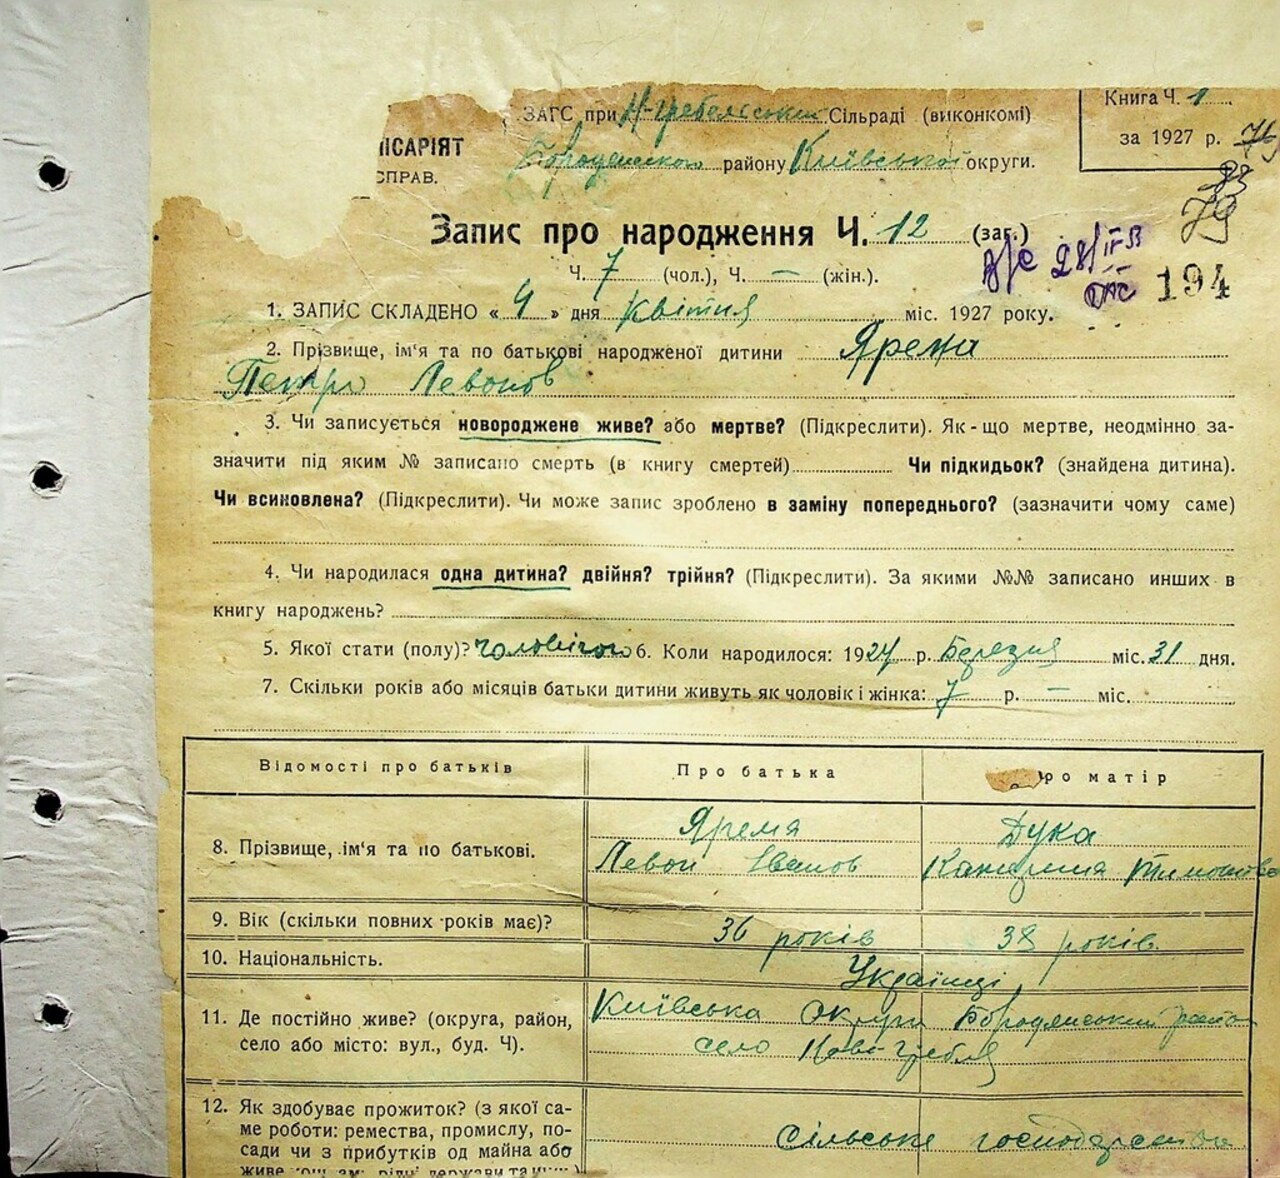 ЗАГС при Н-Гребельській Сільраді (виконкомі)
Книга Ч. 1
ІСАРІЯТ
Бородянського району Київської округи.
за 1927 р.
СПРАВ.
79
Запис про народження Ч. 12 (заг.)
Ч. 7 (чол.), Ч. — (жін.).
194
1. ЗАПИС СКЛАДЕНО « 4 » дня квітня міс. 1927 року.
2. Прізвище, ім'я та по батькові народженої дитини Ярема
Петро Левонов
3. Чи записується новороджене живе? або мертве? (Підкреслити). Як-що мертве, неодмінно за-
значити під яким № записано смерть (в книгу смертей) Чи підкидьок? (знайдена дитина).
Чи всиновлена? (Підкреслити). Чи може запис зроблено в заміну попереднього? (зазначити чому саме)
4. Чи народилася одна дитина? двійня? трійня? (Підкреслити). За якими №№ записано инших в
книгу народжень?
5. Якої стати (полу)? чоловічого 6. Коли народилося: 1927 р. Березня міс. 31 дня.
7. Скільки років або місяців батьки дитини живуть як чоловік і жінка: 7 р. — міс.
Відомості про батьків Про батька ро матір
8. Прізвище, ім'я та по батькові.
Ярема
Левон Іванов
Дука
Катерина Тимошова
9. Вік (скільки повних років має)? 36 років 38 років
10. Національність. Українці
11. Де постійно живе? (округа, район,
село або місто: вул., буд. Ч).
Київська округи Бородянський район
село Нова-Гребля
12. Як здобуває прожиток? (з якої са-
ме роботи: ремества, промислу, по-
сади чи з прибутків од майна або
сільське господарство